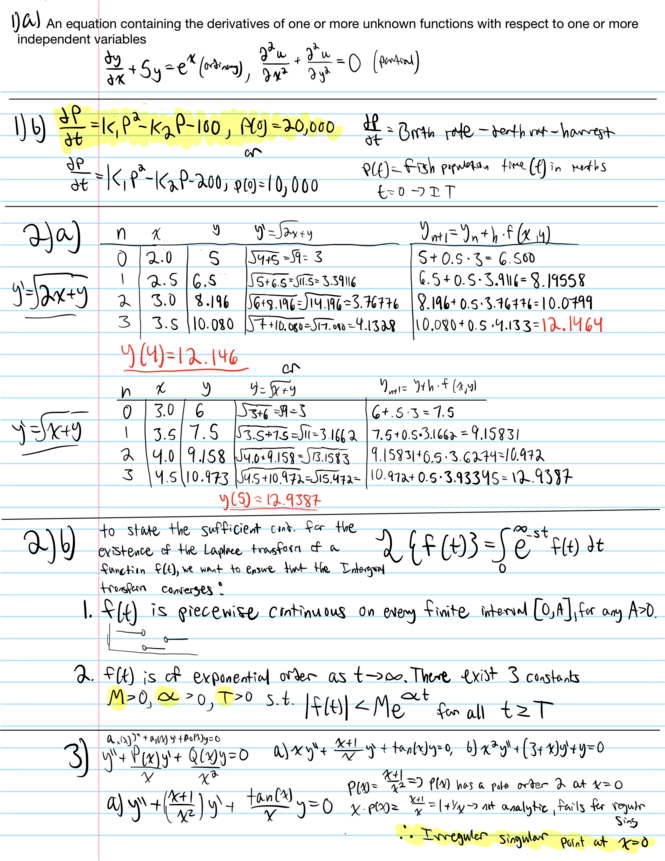 1) a) An equation containing the derivatives of one or more unknown functions with respect to one or more
independent variables
dy/dx + 5y = e^x (ordinary), ∂²u/∂x² + ∂²u/∂y² = 0 (partial)
1) b) dP/dt = K₁P² - K₂P - 100, P(0) = 20,000
or
dP/dt = K₁P² - K₂P - 200, P(0) = 10,000
dP/dt = Birth rate - death rate - harvest
P(t) = fish population time (t) in months
t=0 → I T
2) a)
y' = √2x+y
n x y y' = √2x+y y_{n+1} = y_n + h · f(x,y)
0 2.0 5 √4+5 = √9 = 3 5 + 0.5 · 3 = 6.500
1 2.5 6.5 √5+6.5 = √11.5 = 3.39116 6.5 + 0.5 · 3.9116 = 8.19558
2 3.0 8.196 √6+8.196 = √14.196 = 3.76776 8.196 + 0.5 · 3.76776 = 10.0799
3 3.5 10.080 √7+10.080 = √17.080 = 4.1328 10.080 + 0.5 · 4.133 = 12.1464
y(4) = 12.146
or
y = √x+y
n x y y = √x+y y_{n+1} = y + h · f(x,y)
0 3.0 6 √3+6 = √9 = 3 6 + .5 · 3 = 7.5
1 3.5 7.5 √3.5+7.5 = √11 = 3.1662 7.5 + 0.5 · 3.1662 = 9.15831
2 4.0 9.158 √4.0+9.158 = √13.1583 9.15831 + 0.5 · 3.6274 = 10.972
3 4.5 10.973 √4.5+10.972 = √15.472 = 10.972 + 0.5 · 3.93345 = 12.9387
y(5) = 12.9387
2) b) to state the sufficient cond. for the
existence of the Laplace transform of a
function f(t), we want to ensure that the Intergral
transform converges:
ℒ{f(t)} = ∫₀^∞ e^{-st} f(t) dt
1. f(t) is piecewise continuous on every finite interval [0,A], for any A>0.
2. f(t) is of exponential order as t→∞. There exist 3 constants
M>0, α>0, T>0 s.t. |f(t)| < Me^{αt} for all t ≥ T
3) a₂(x)y'' + a₁(x)y' + a₀(x)y = 0
y'' + P(x)/x y' + Q(x)/x² y = 0 a) xy'' + x+1/x y' + tan(x)y = 0, b) x²y'' + (3+x)y' + y = 0
a) y'' + (x+1/x²) y' + tan(x)/x y = 0
P(x) = x+1/x² => P(x) has a pole order 2 at x=0
x · P(x) = x+1/x = 1 + 1/x → not analytic, fails for regular
Sing
∴ Irregular singular point at x=0